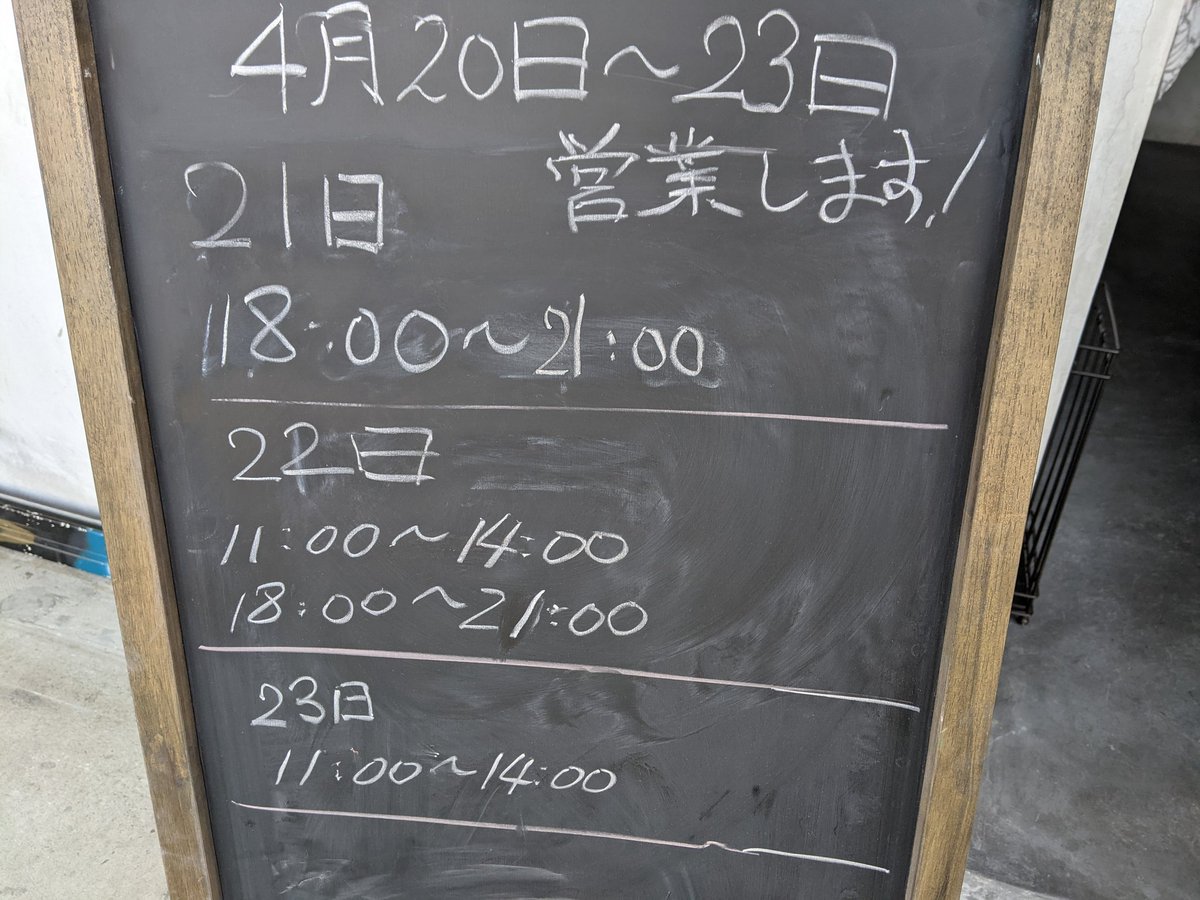 4月20日～23日
営業します!
21日
18:00～21:00
22日
11:00～14:00
18:00～21:00
23日
11:00～14:00